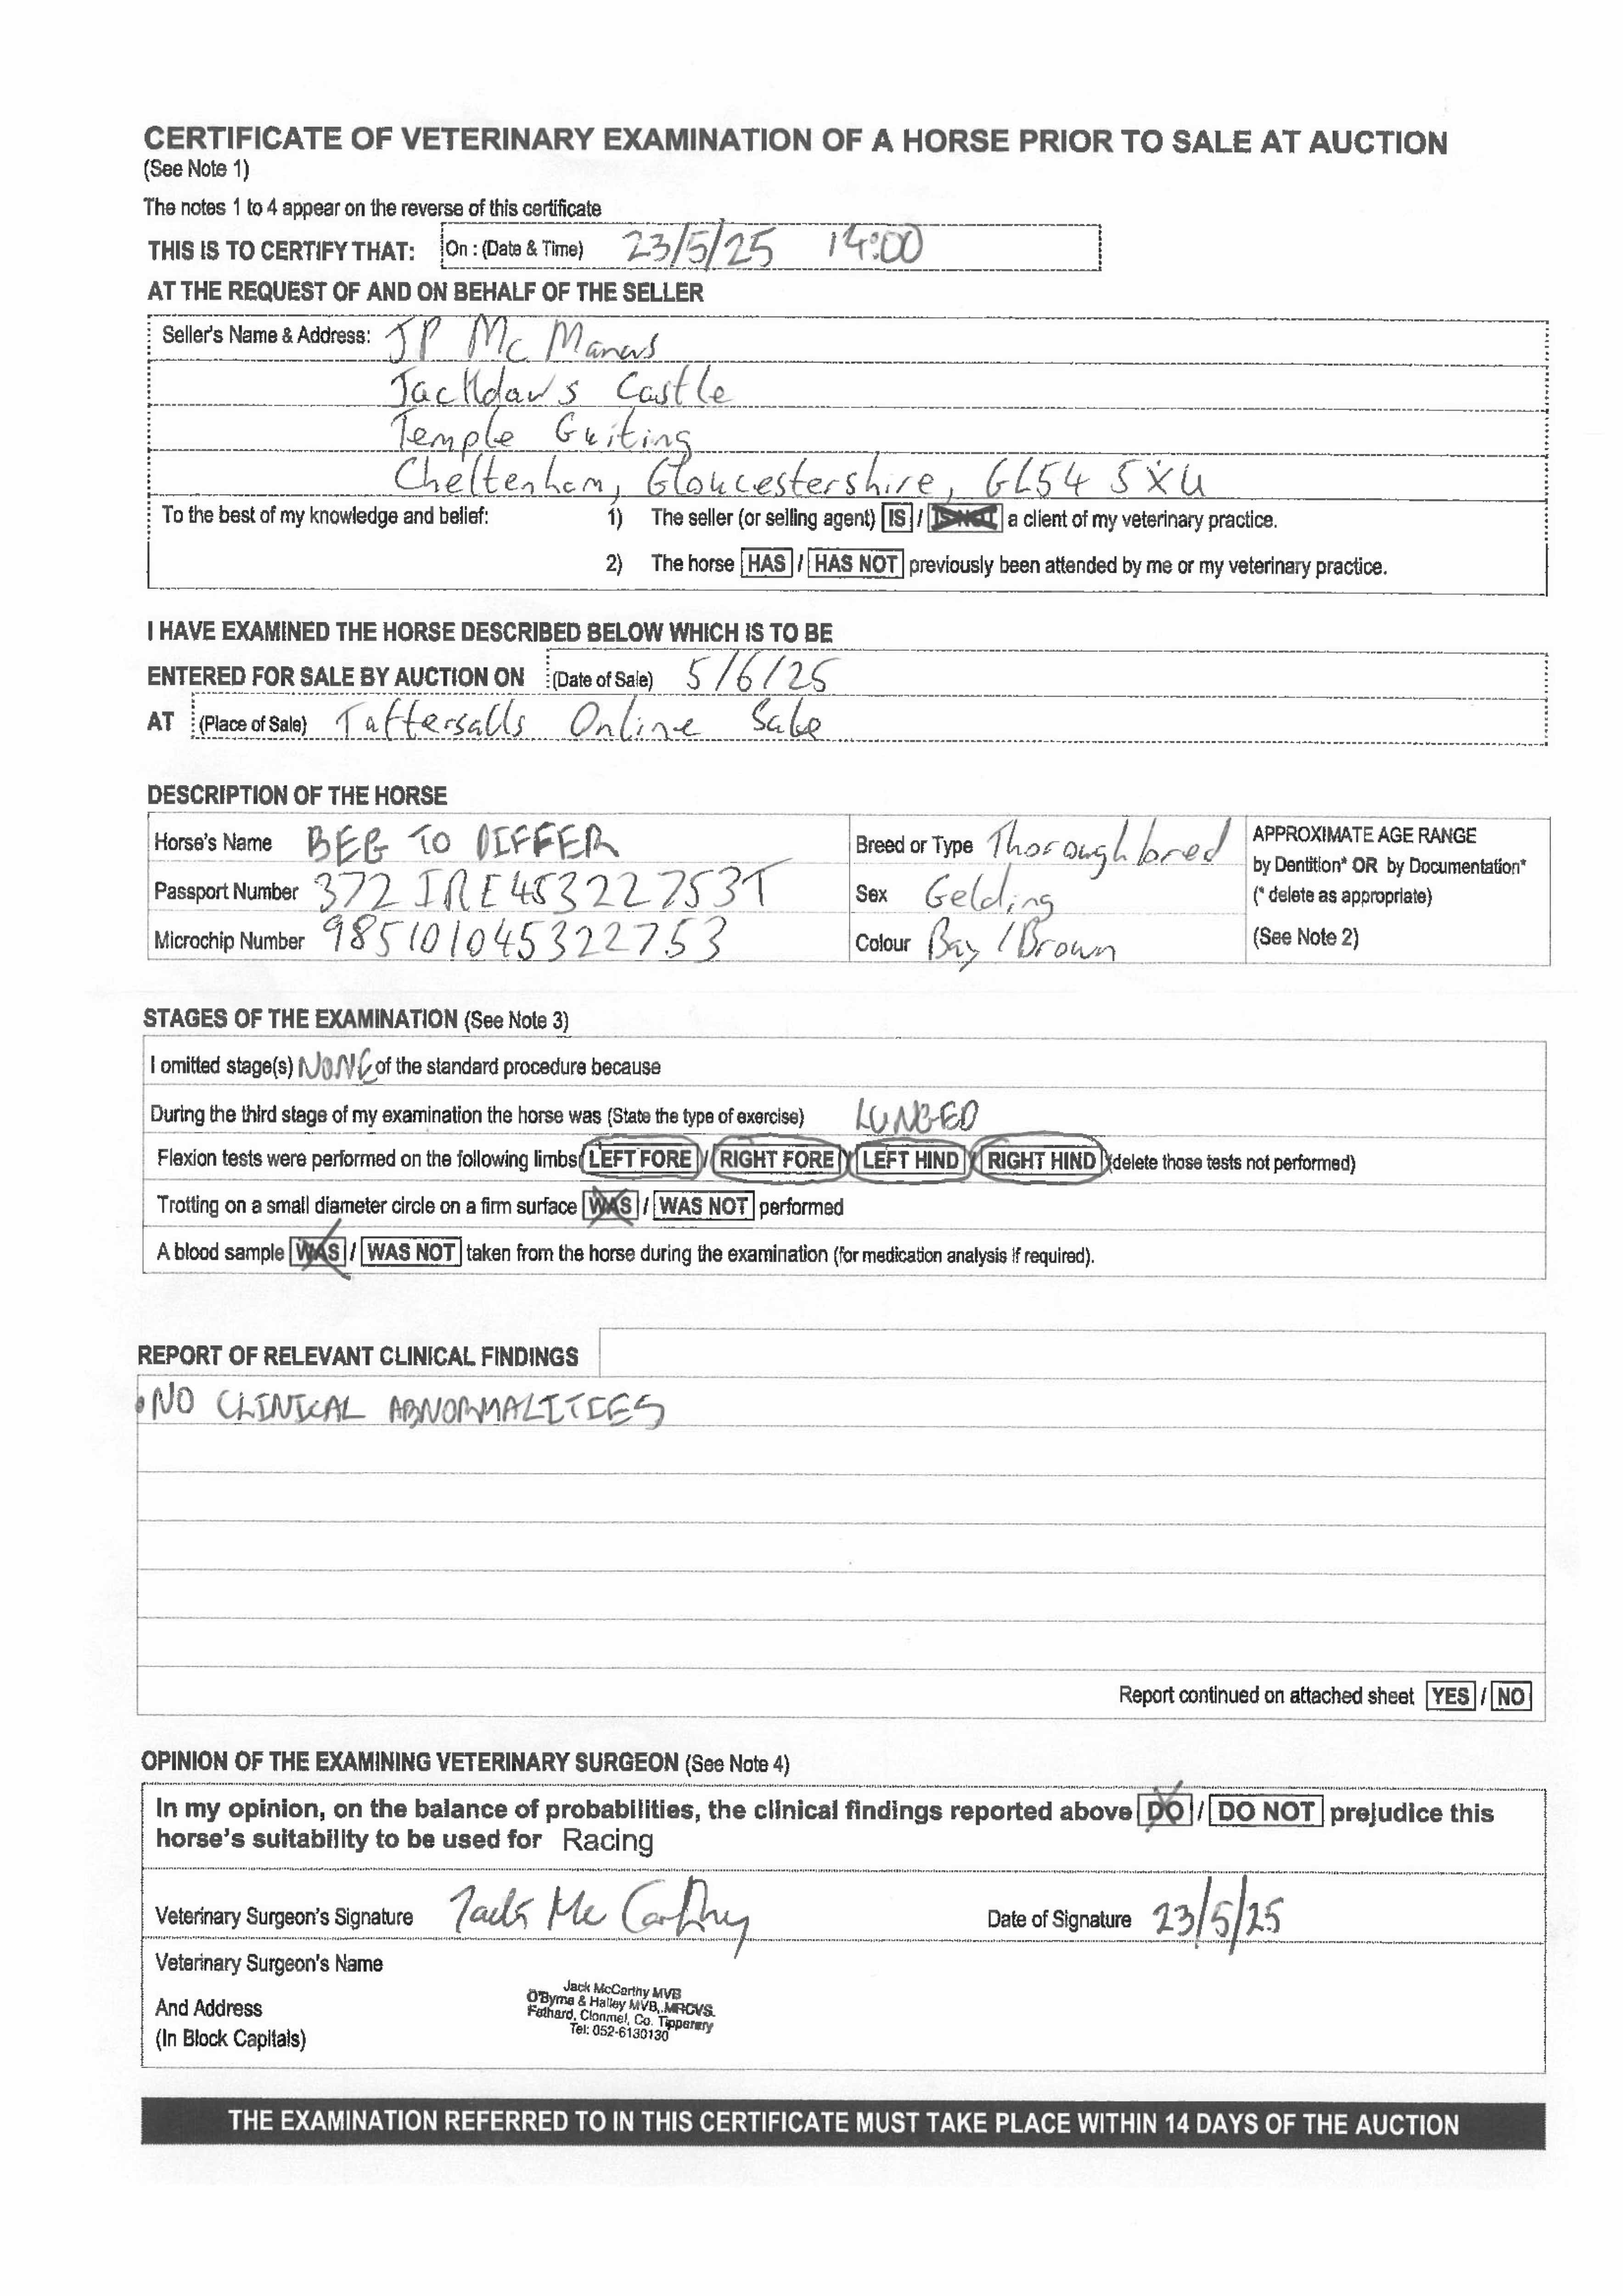 CERTIFICATE OF VETERINARY EXAMINATION OF A HORSE PRIOR TO SALE AT AUCTION
(See Note 1)
The notes 1 to 4 appear on the reverse of this certificate
THIS IS TO CERTIFY THAT: On : (Date & Time) 23/5/25 14:00
AT THE REQUEST OF AND ON BEHALF OF THE SELLER
Seller's Name & Address: JP Mc Manus
Jackdaws Castle
Temple Guiting
Cheltenham, Gloucestershire, GL54 5XU
To the best of my knowledge and belief: 1) The seller (or selling agent) IS / IS NOT a client of my veterinary practice.
2) The horse HAS / HAS NOT previously been attended by me or my veterinary practice.
I HAVE EXAMINED THE HORSE DESCRIBED BELOW WHICH IS TO BE
ENTERED FOR SALE BY AUCTION ON (Date of Sale) 5/6/25
AT (Place of Sale) Tattersalls Online Sale
DESCRIPTION OF THE HORSE
Horse's Name BEG TO DIFFER Breed or Type Thoroughbred APPROXIMATE AGE RANGE
by Dentition* OR by Documentation*
Passport Number 372IRE45322753T Sex Gelding (* delete as appropriate)
Microchip Number 985101045322753 Colour Bay / Brown (See Note 2)
STAGES OF THE EXAMINATION (See Note 3)
I omitted stage(s) NONE of the standard procedure because
During the third stage of my examination the horse was (State the type of exercise) LUNGED
Flexion tests were performed on the following limbs LEFT FORE / RIGHT FORE / LEFT HIND / RIGHT HIND (delete those tests not performed)
Trotting on a small diameter circle on a firm surface WAS / WAS NOT performed
A blood sample WAS / WAS NOT taken from the horse during the examination (for medication analysis if required).
REPORT OF RELEVANT CLINICAL FINDINGS
• NO CLINICAL ABNORMALITIES
Report continued on attached sheet YES / NO
OPINION OF THE EXAMINING VETERINARY SURGEON (See Note 4)
In my opinion, on the balance of probabilities, the clinical findings reported above DO / DO NOT prejudice this
horse's suitability to be used for Racing
Veterinary Surgeon's Signature Jack Mc Carthy Date of Signature 23/5/25
Veterinary Surgeon's Name
And Address
(In Block Capitals)
Jack McCarthy MVB
O'Byrne & Halley MVB, MRCVS.
Fethard, Clonmel, Co. Tipperary
Tel: 052-6130130
THE EXAMINATION REFERRED TO IN THIS CERTIFICATE MUST TAKE PLACE WITHIN 14 DAYS OF THE AUCTION